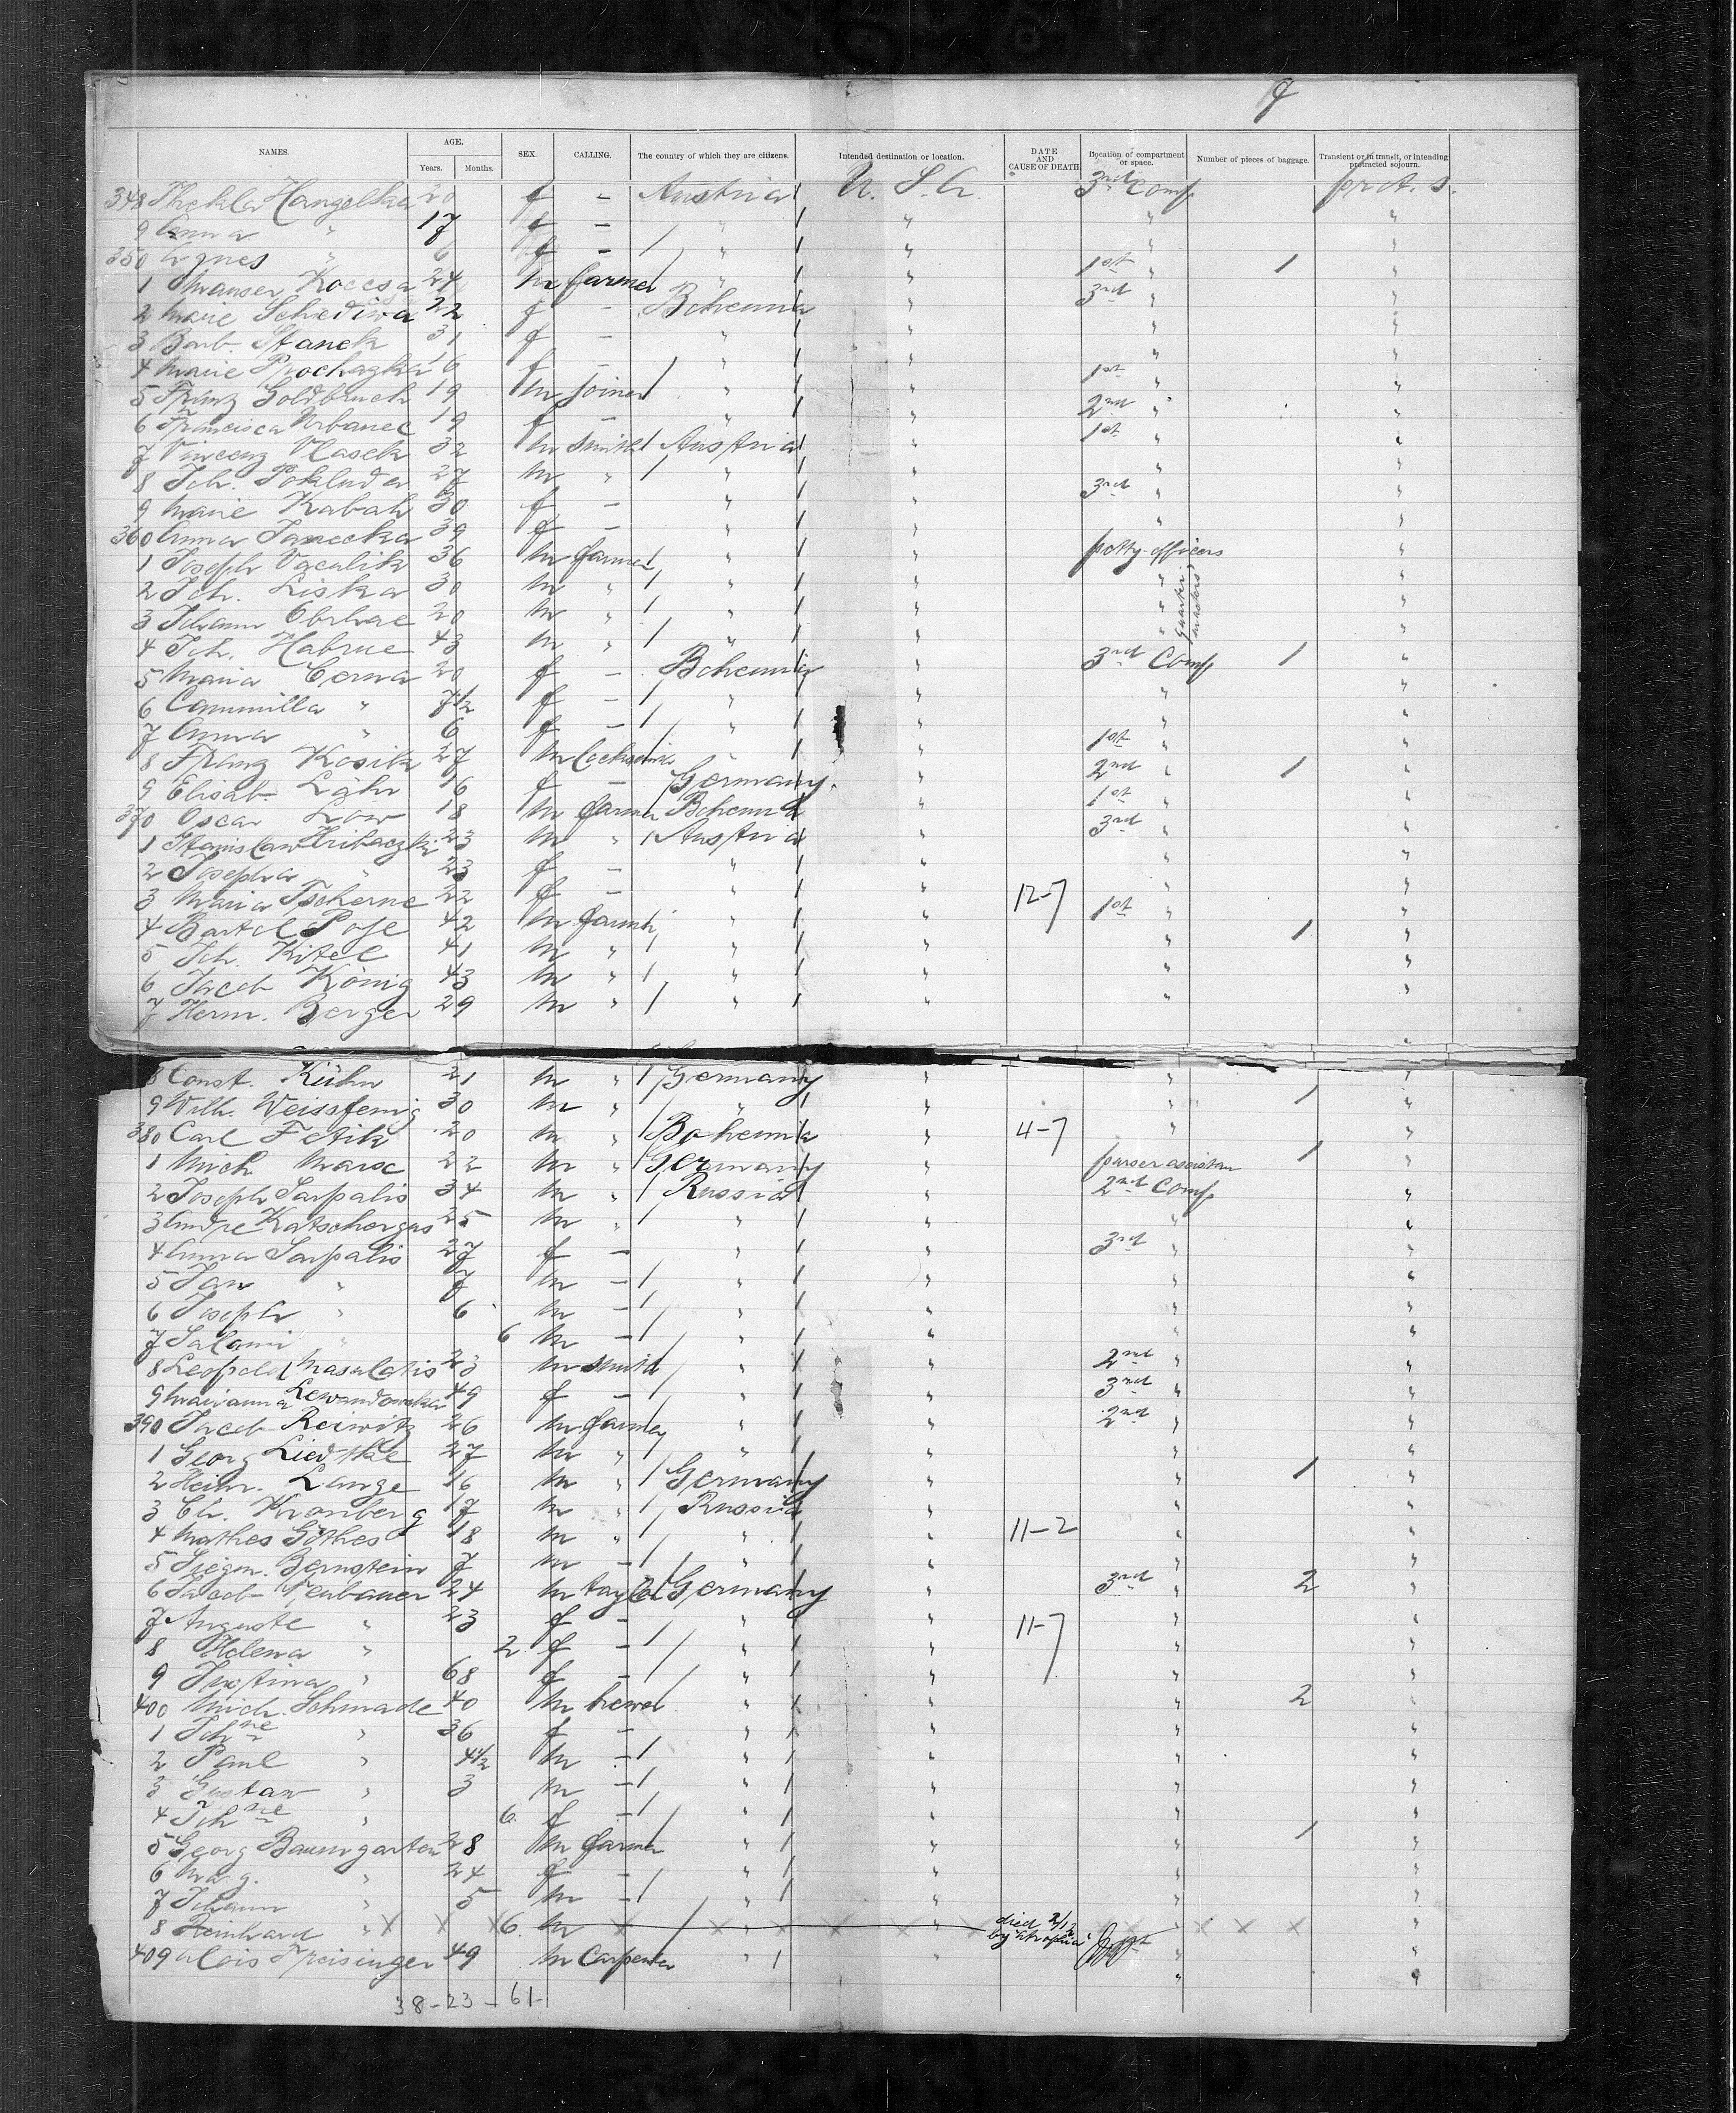 9
NAMES. AGE. Years. Months. SEX. CALLING. The country of which they are citizens. Intended destination or location. DATE AND CAUSE OF DEATH Location of compartment or space. Number of pieces of baggage. Transient or in transit, or intending protracted sojourn.
348 Thekla Hangelka 20 f – Austria U. S. A. 3rd Comp prot. s.
9 Anna " 17 f – " " " "
350 Agnes " 6 f – " " " "
1 Koccsa 24 m farmer " " 1st " 1 "
2 Marie Schediwa 22 f – Bohemia " 3rd " "
3 Barb. Stanek 31 f – " " "
4 Marie Prochazka 16 f – " " " "
5 Franz Goldbruch 19 m joiner " " 1st " "
6 Francisca Urbanec 19 f – " " 2nd " "
7 Vincenz Vlasek 32 m smith Austria " 1st " "
8 Joh. Pokluda 27 m " " " " "
9 Marie Kabah 30 f – " " 3rd " "
360 Anna Janecka 39 f – " " " "
1 Joseph Vacalik 36 m farmer " " petty-officers "
2 Joh. Liska 30 m " " " " quarter masters "
3 Johann Oberhac 20 m " " " " "
4 Joh. Habrue 43 m " " " " "
5 Maria Cerna 20 f – Bohemia " 3rd Comp 1 "
6 Cammilla " 7 1/2 f – " " " "
7 Anna " 6 f – " " " "
8 Franz Kosik 27 m locksmith " " 1st " "
9 Elisab. Lähr 16 f – Germany " 2nd " 1 "
370 Oscar Löw 18 m farmer Bohemia " 1st " "
1 Stanislaw Hribaczki 23 m " Austria " 3rd " "
2 Josepha " 23 f – " " " "
3 Maria Tscherne 22 f – " " 12-7 " "
4 Bartel Pose 42 m farmer " " 1st " "
5 Joh. Kitel 41 m " " " " 1 "
6 Jacob König 43 m " " " " "
7 Herm. Berger 29 m " " " " "
8 Const. Kühn 21 m " Germany " " "
9 Wilh. Weissfenig 30 m " " " " 1 "
380 Carl Fetik 20 m " Bohemia " 4-7 " "
1 Mich Marx 22 m " Germany " purser assistan 1 "
2 Joseph Sarpalis 34 m " Russia " 2nd Comp "
3 Andre Katschergus 25 m " " " " "
4 Anna Sarpalis 27 f – " " 3rd " "
5 Jan " 7 m – " " " "
6 Joseph " 6 m – " " " "
7 Salami " 6 m – " " " "
8 Leopold Masalatis 23 m smith " " 2nd " "
9 Marianna Lewandowska 49 f – " " 3rd " "
390 Jacob Reiwitz 26 m farmer " " 2nd " "
1 Georg Liedtke 27 m " " " " "
2 Heinr. Lange 16 m " Germany " " 1 "
3 Ch. Kronberg 17 m " Russia " " "
4 Mathes Göthes 18 m " " " 11-2 " "
5 Siegm. Bernstein 7 m – " " " "
6 Jacob Neubauer 24 m taylor Germany " 3rd " 2 "
7 Auguste " 23 f – " " 11-7 " "
8 Helena " 2 f – " " " "
9 Justina " 68 f – " " " "
400 Mich. Schmade 40 m hewer " " " 2 "
1 Johne " 36 f – " " " "
2 Paul " 4 1/2 m – " " " "
3 Gustav " 3 m – " " " "
4 Johne " 6 f – " " " "
5 Georg Baumgarten 28 m farmer " " " 1 "
6 Marg. " 24 f – " " " "
7 Johann " 5 m – " " " "
8 Reinhard " 6 m " " died 2/12 by Atrophia " "
409 Alois Freisinger 49 m Carpenter " " " "
38-23-61-